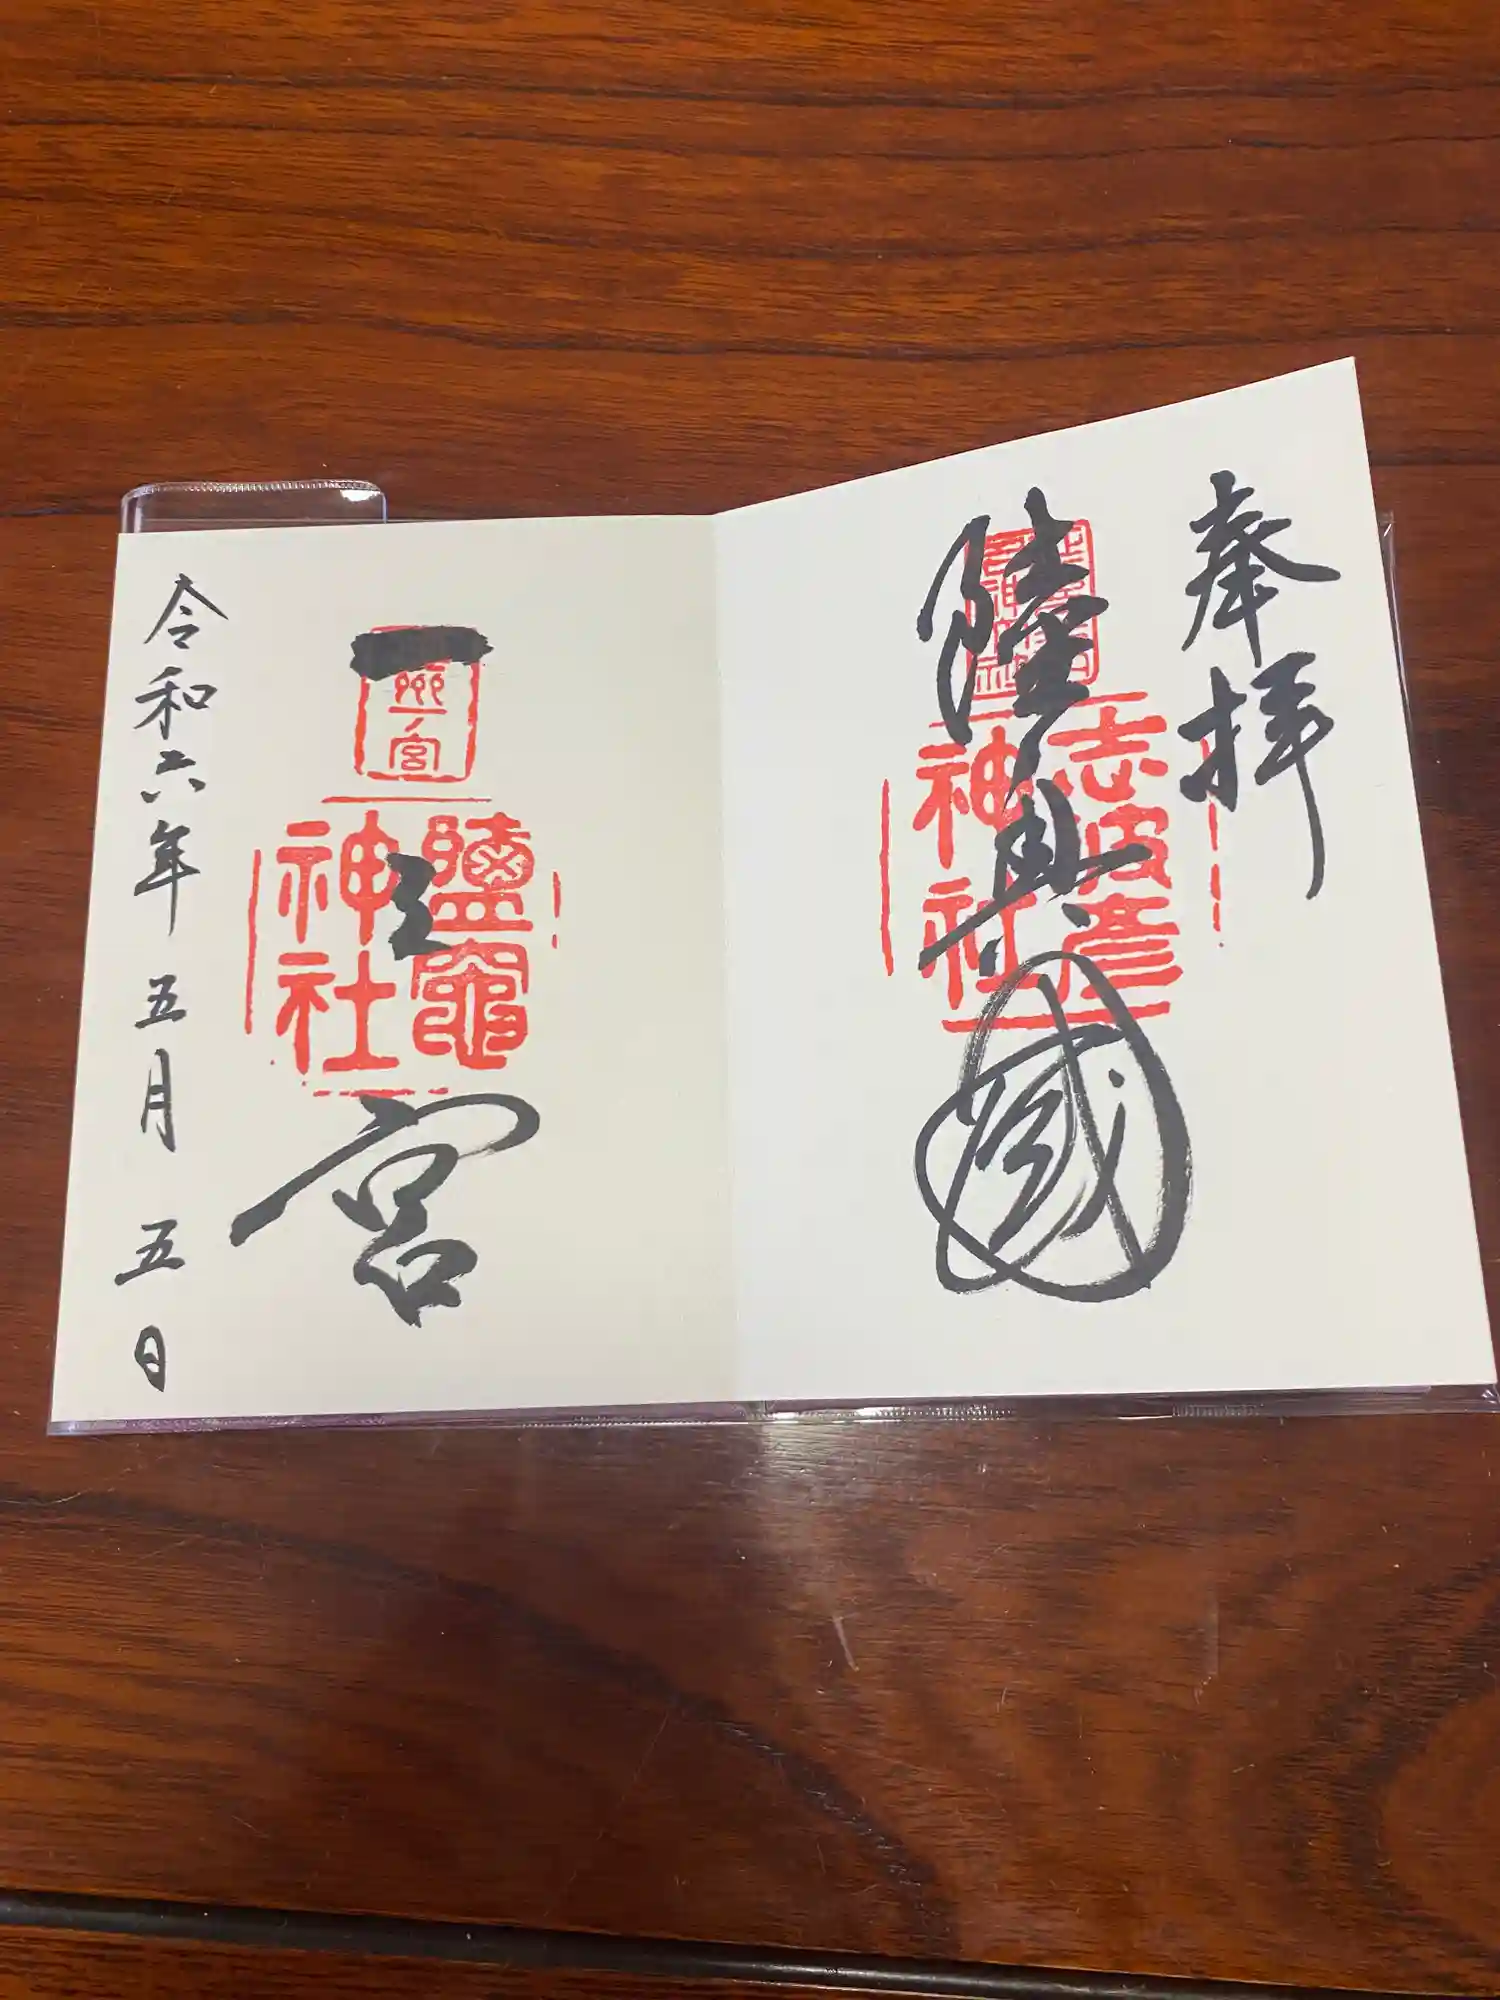 奉拝
陸奥國
志波彦
神社
一之宮
一宮
鹽竈
神社
令和六年五月五日